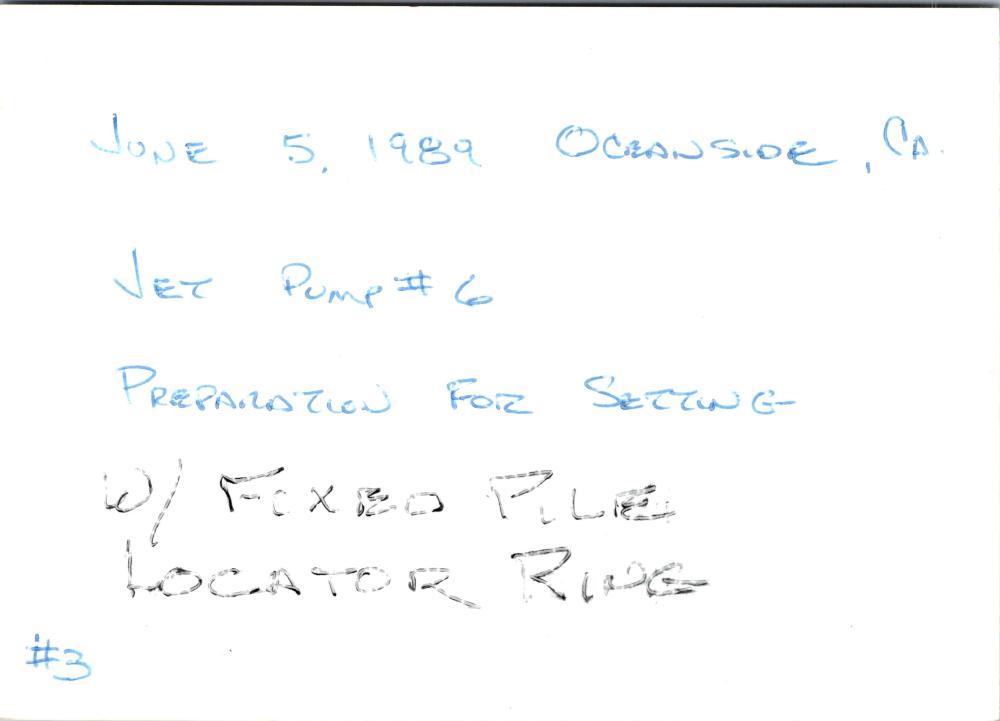 JUNE 5, 1989 OCEANSIDE, CA.
JET PUMP #6
PREPARATION FOR SETTING
W/ FIXED PILE
LOCATOR RING
#3